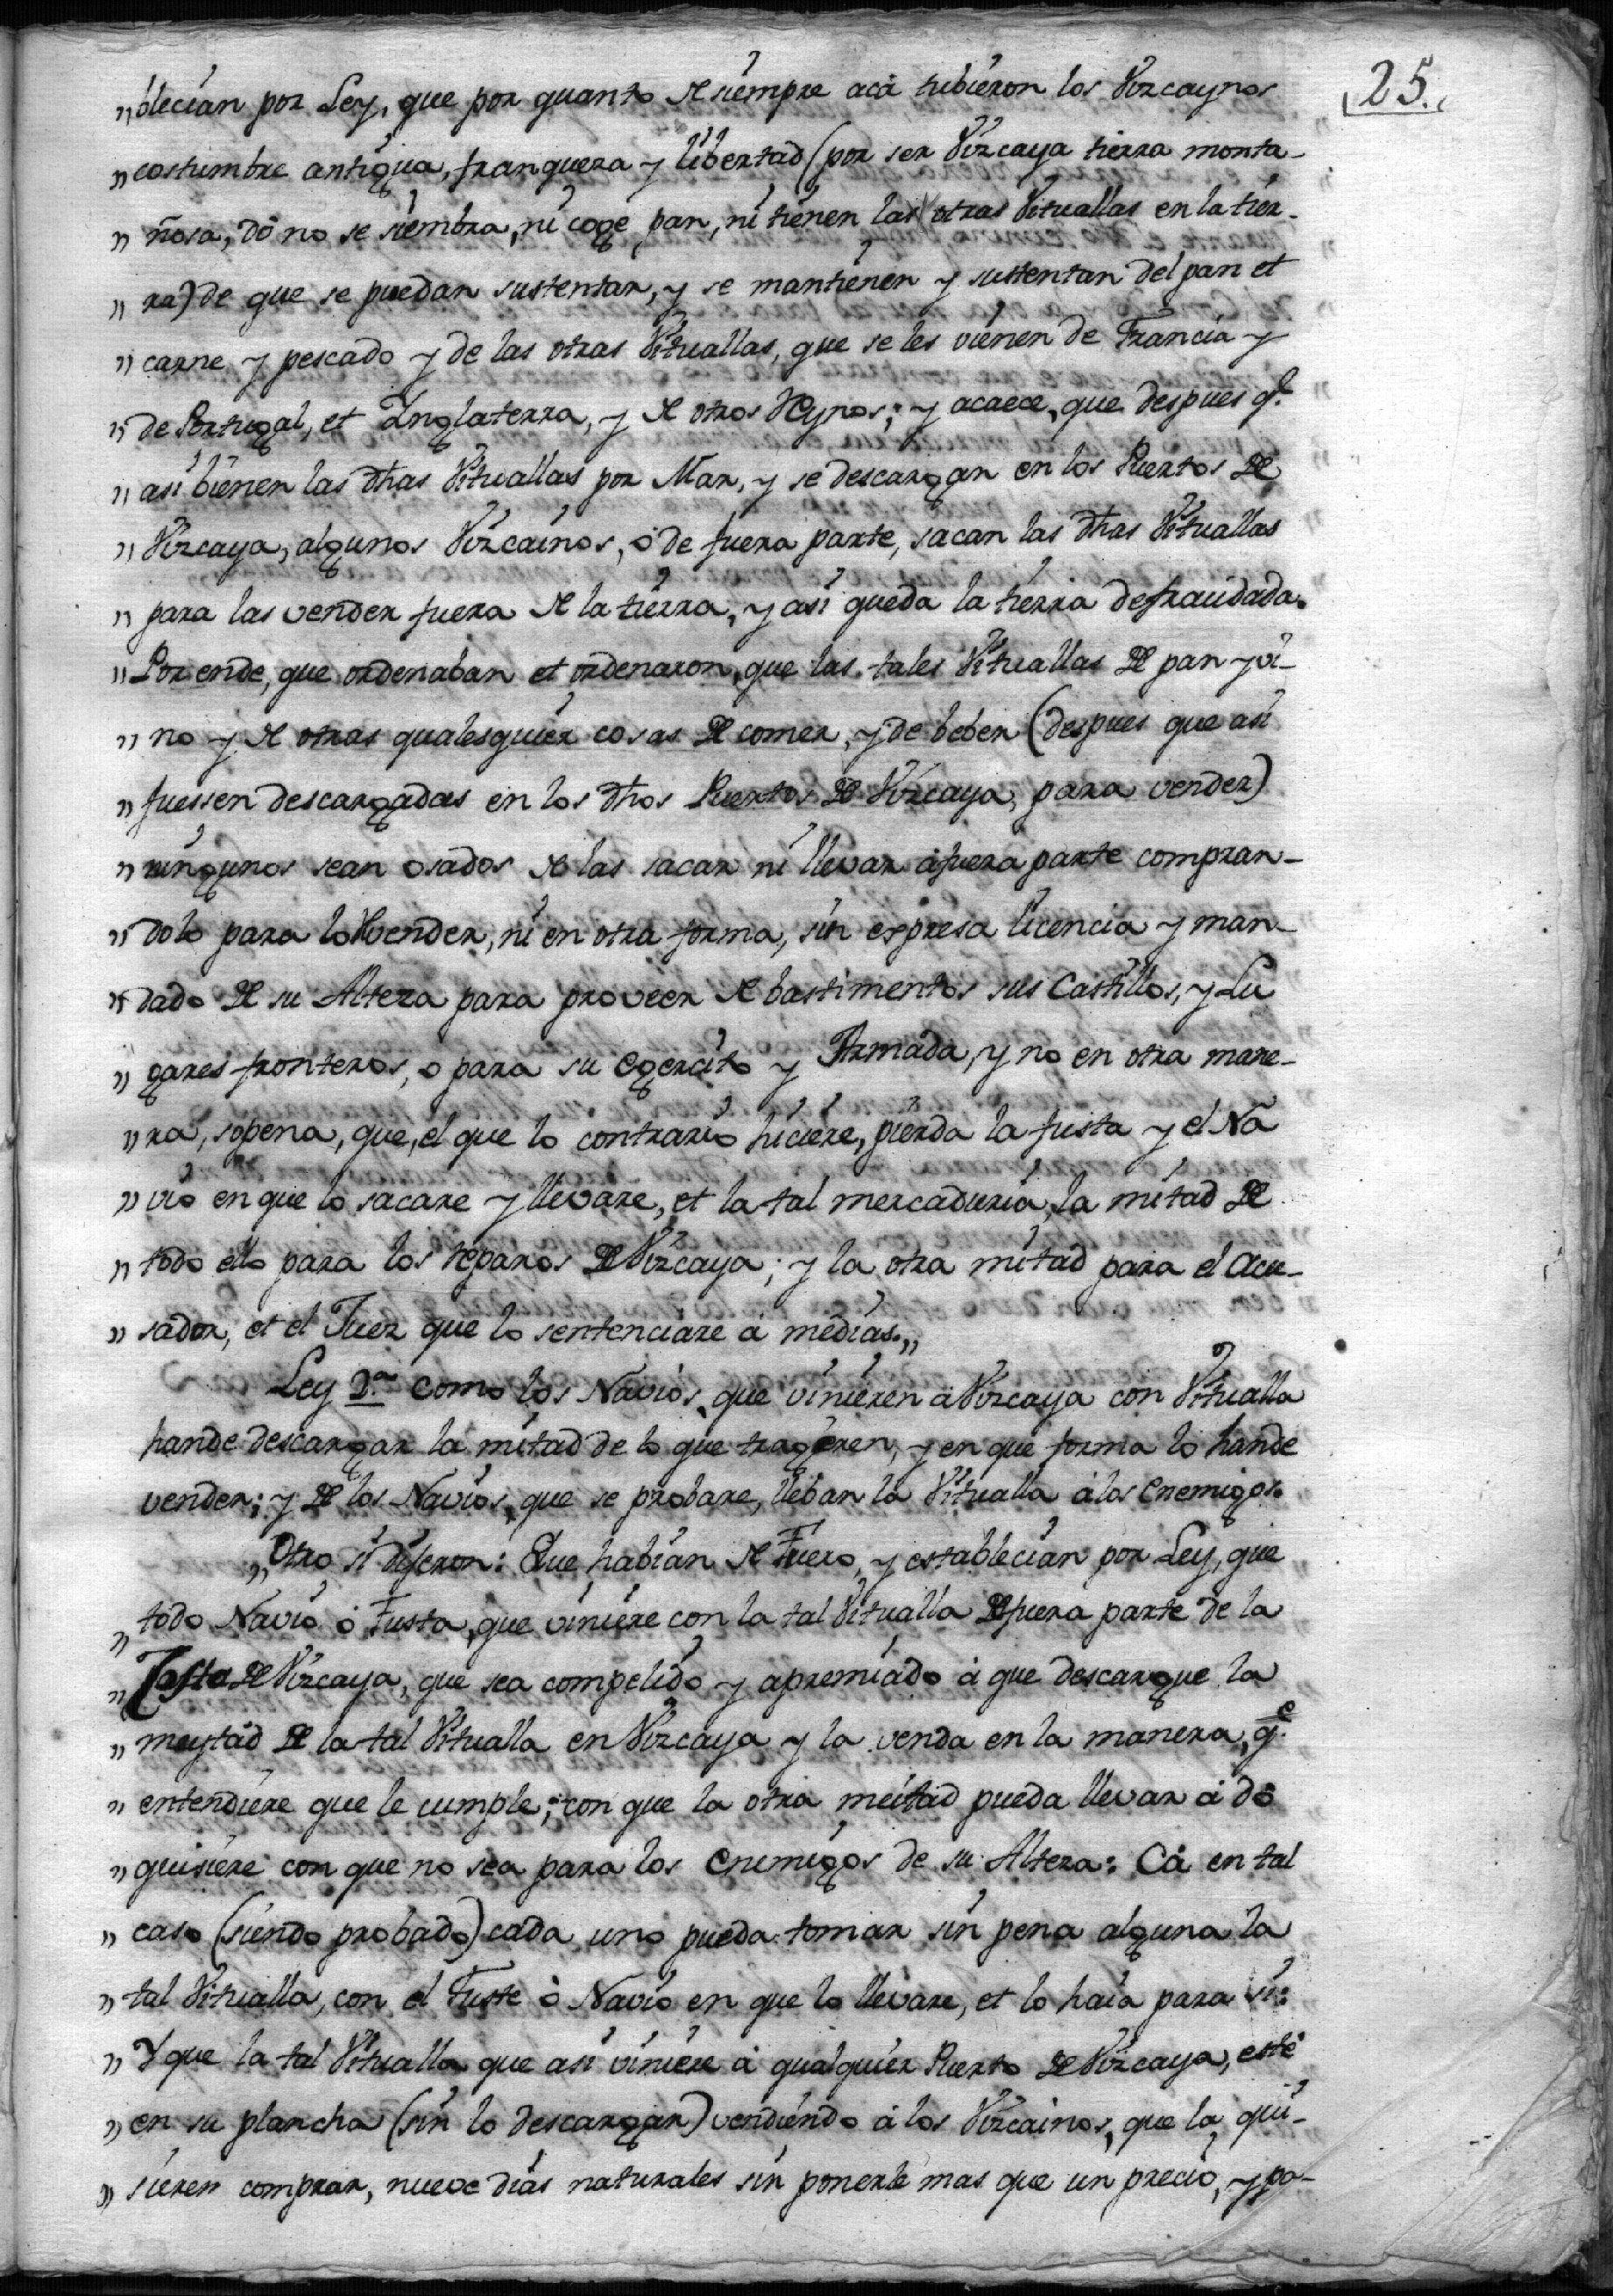 25.
„blecían por Ley, que por quanto de siempre acá tubieron los Vizcaynos
„costumbre antigua, franqueza y libertad (por ser Vizcaya tierra monta-
„ñosa, dó no se siembra, ni coge pan, ni tienen las otras Vituallas en la tier-
„ra) de que se puedan sustentar, y se mantienen y sustentan del pan et
„carne y pescado y de las otras Vituallas, que se les vienen de Francia y
„de Portugal, et Inglaterra, y de otros Reynos; y acaece, que despues q.e
„así bienen las dhas Vituallas por Mar, y se descargan en los Puertos de
„Vizcaya, algunos Vizcainos, ó de fuera parte, sacan las dhas Vituallas
„para las vender fuera de la tierra, y así queda la tierra defraudada.
„Por ende, que ordenaban et ordenaron, que las tales Vituallas de pan y vi-
„no y de otras qualesquier cosas de comer, y de beber (despues que así
„fuessen descargadas en los dhos Puertos de Vizcaya, para vender)
„ningunos sean osados de las sacar ni llevar á fuera parte compran-
„dolo para lo vender, ni en otra forma, sin expresa licencia y man-
„dado de su Alteza para proveer de bastimentos sus Castillos, y Lu
„gares fronteros, o para su Egercito y Armada, y no en otra mane-
„ra, sopena, que, el que lo contrario hiciere, pierda la fusta y el Na
„vio en que lo sacare y llevare, et la tal mercaduria, la mitad de
„todo ello para los reparos de Vizcaya; y la otra mitad para el Acu-
„sador, et el Juez que lo sentenciare á medias.„
Ley 2.a como los Navios, que vinieren á Vizcaya con Vitualla
hande descargar la mitad de lo que trageren, y en que forma lo hande
vender; y de los Navios, que se probare, lleban la Vitualla á los Enemigos.
„Otro si dijeron: Que habían de Fuero, y establecían por Ley, que
„todo Navio ó Fusta, que viniere con la tal Vitualla de fuera parte de la
„Costa de Vizcaya, que sea compelido y apremiado á que descargue la
„meytad de la tal Vitualla en Vizcaya y la venda en la manera, q.e
„entendiere que le cumple; con que la otra meitad pueda llevar á dó
„quisiere con que no sea para los Enemigos de su Alteza: Cá en tal
„caso (siendo probado) cada uno pueda tomar sin pena alguna la
„tal Vitualla, con el Fuste ó Navio en que lo llevare, et lo haia para si:
„Y que la tal Vitualla que así viniere á qualquier Puerto de Vizcaya, esté
„en su plancha (sin lo descargar) vendiendo á los Vizcainos, que la qui-
„sieren comprar, nueve dias naturales sin ponerle mas que un precio, y pa-